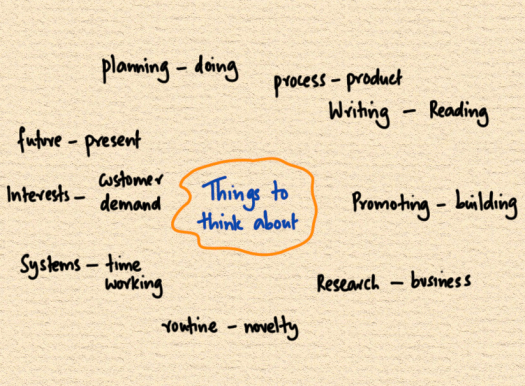 planning – doing
process – product
Writing – Reading
future – present
Interests – customer
demand
Things to
think about
Promoting – building
Systems – time
working
Research – business
routine – novelty